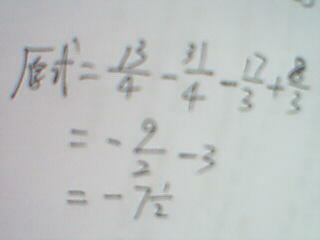 原式 = 13/4 - 31/4 - 17/3 + 8/3
= - 9/2 - 3
= - 7 1/2